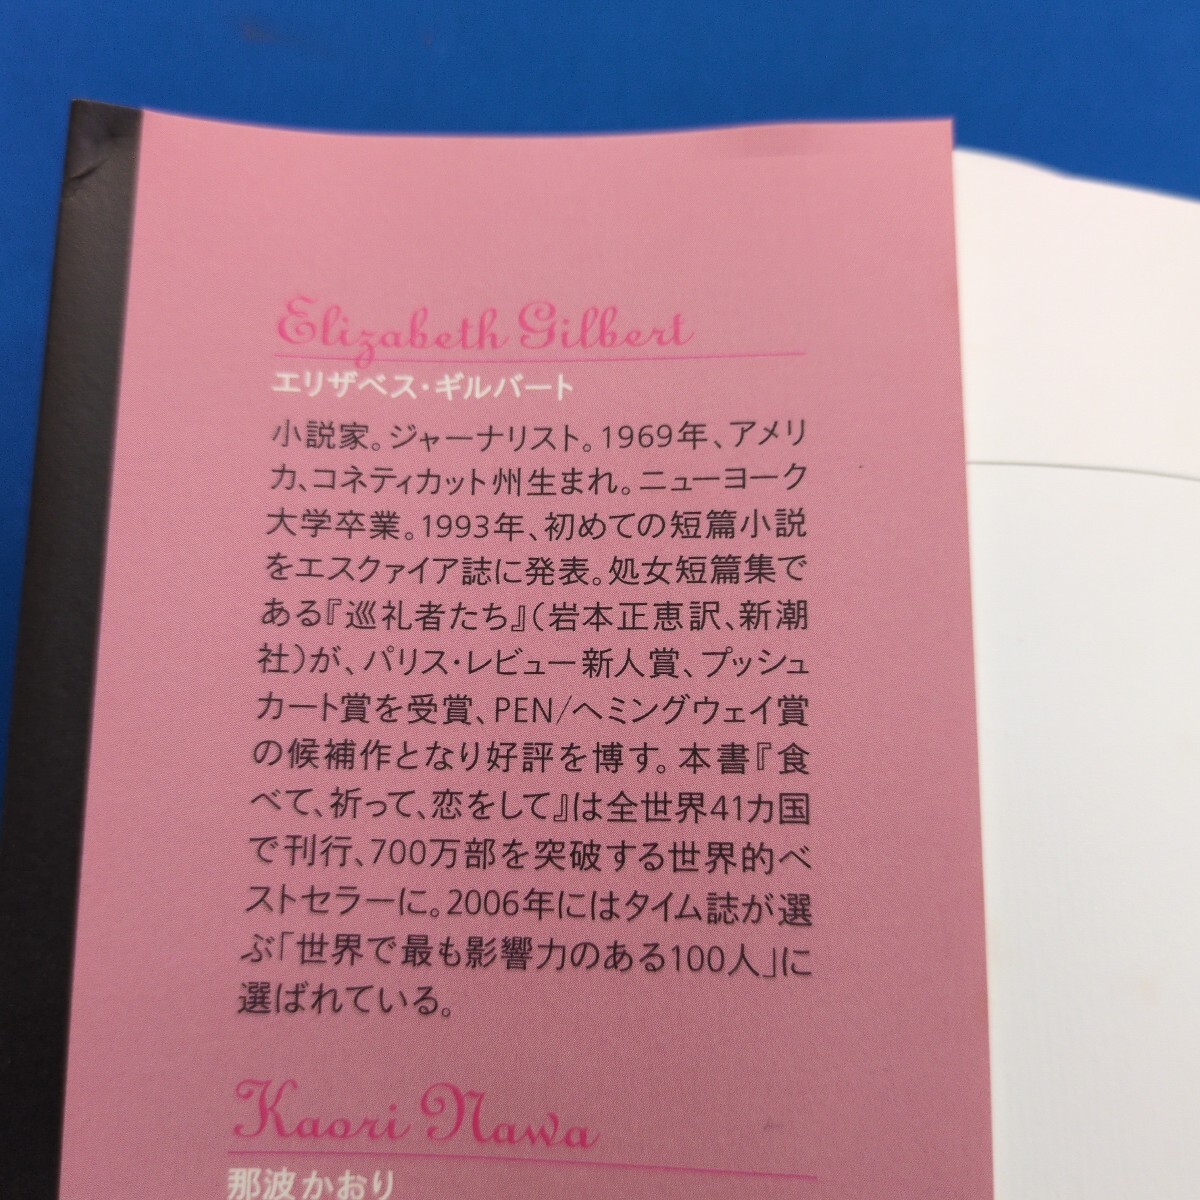 Elizabeth Gilbert
エリザベス・ギルバート
小説家。ジャーナリスト。1969年、アメリ
カ、コネティカット州生まれ。ニューヨーク
大学卒業。1993年、初めての短篇小説
をエスクァイア誌に発表。処女短篇集で
ある『巡礼者たち』（岩本正恵訳、新潮
社）が、パリス・レビュー新人賞、プッシュ
カート賞を受賞、PEN/ヘミングウェイ賞
の候補作となり好評を博す。本書『食
べて、祈って、恋をして』は全世界41カ国
で刊行、700万部を突破する世界的ベ
ストセラーに。2006年にはタイム誌が選
ぶ「世界で最も影響力のある100人」に
選ばれている。
Kaori Nawa
那波かおり